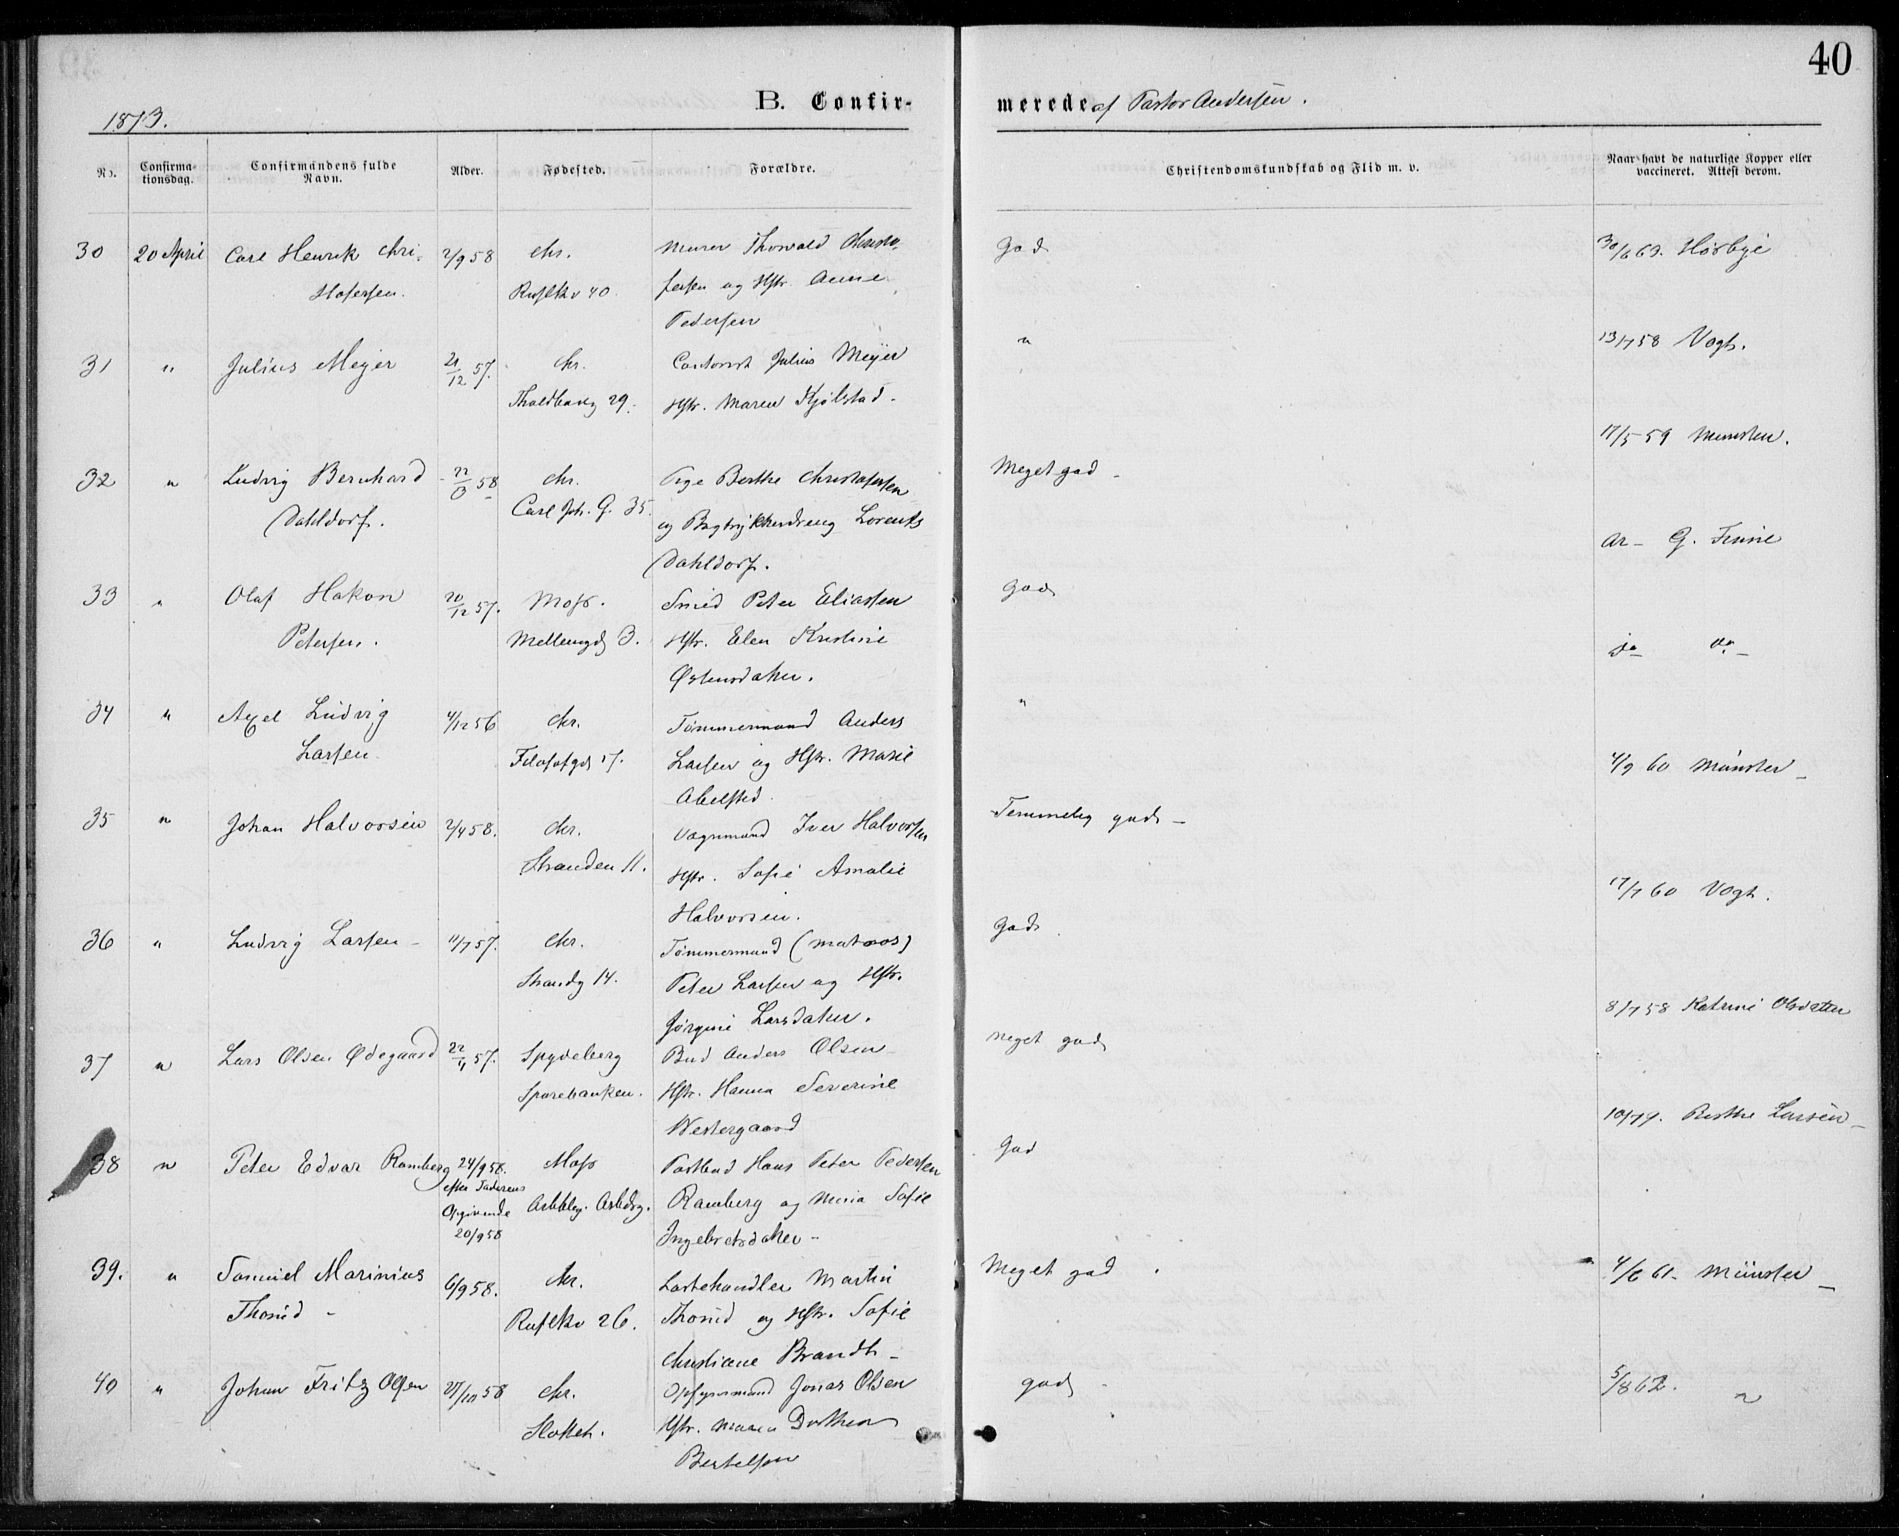 40
B. Confir-
merede af Pastor Andersen.
1873.
No.
Confirma-
tionsdag.
Confirmandens fulde
Navn.
Alder.
Fødested.
Forældre.
Christendomskundskab og Flid m. v.
Naar havt de naturlige Kopper eller
vaccineret. Attest derom.
30 20 April Carl Henrik Chri- 2/9 58 Chr. Murer Thorvald Christo- God 30/6 63. Hørbye
stofersen. Ruselkv 40 fersen og Hstr. Anne
Pedersen
31 " Julius Mejer 21/12 57. Chr. Contorist Julius Meyer " 13/7 58 Vogt.
29. Hstr. Maren Kjølstad.
32 " Ludvig Bernhard 22/3 58 Chr. Pige Berthe Christofersen Meget god - 17/5 59 Munster.
Dahldorf. Carl Joh. G. 35. og Lorents
Dahldorf.
33 " Olaf Hakon 20/12 57. Moss. Smed Peter Eliassen God G. Finne
Petersen. Mellemgd 3. Hstr. Elen Kristine
34 " Axel Ludvig 4/12 56 Chr. Tømmermand Anders " do do -
Larsen Filosofgd 17. Larsen og Hstr. Marie
Abelsted
35 " Johan Halvorsen 2/4 58. Chr. Vognmand Iver Halvorsen Temmelig god - 4/9 60 Münster -
Stranden 11. Hstr. Sofie Amalie
Halvorsen.
36 " Ludvig Larsen - 11/7 57. Chr. Tømmermand (matros) God 17/7 60 Vogt.
Strandg 14. Peter Larsen og Hstr.
Jørgine Larsdatter.
37 " Lars Olsen Ødegaard 22/11 57. Spydeberg Bud Anders Olsen meget god 8/7 58 Katrine Olsdatter
Sparebanken. Hstr. Hanna Severine
Westergaard
38 " Peter Edvar Ramberg 24/9 58. Moss Postbud Hans Peter Pedersen God Berthe Larsen -
efter Faderens Ramberg og Maria Sofie
Opgivende Ingebretsdatter -
20/9 58
39. " Samuel Marinius 6/9 58. Chr. Lastehandler Martin Meget god. 4/6 61 - Münster -
Thorud - Ruselkv 26. Thorud og Hstr. Sofie
Christiane Brandt -
40 " Johan Fritz Olsen 27/10 58 Chr. Opsynsmand Jonas Olsen god - 5/8 62. "
Slottet. Hstr. Maren Dorthea
Bertelsen